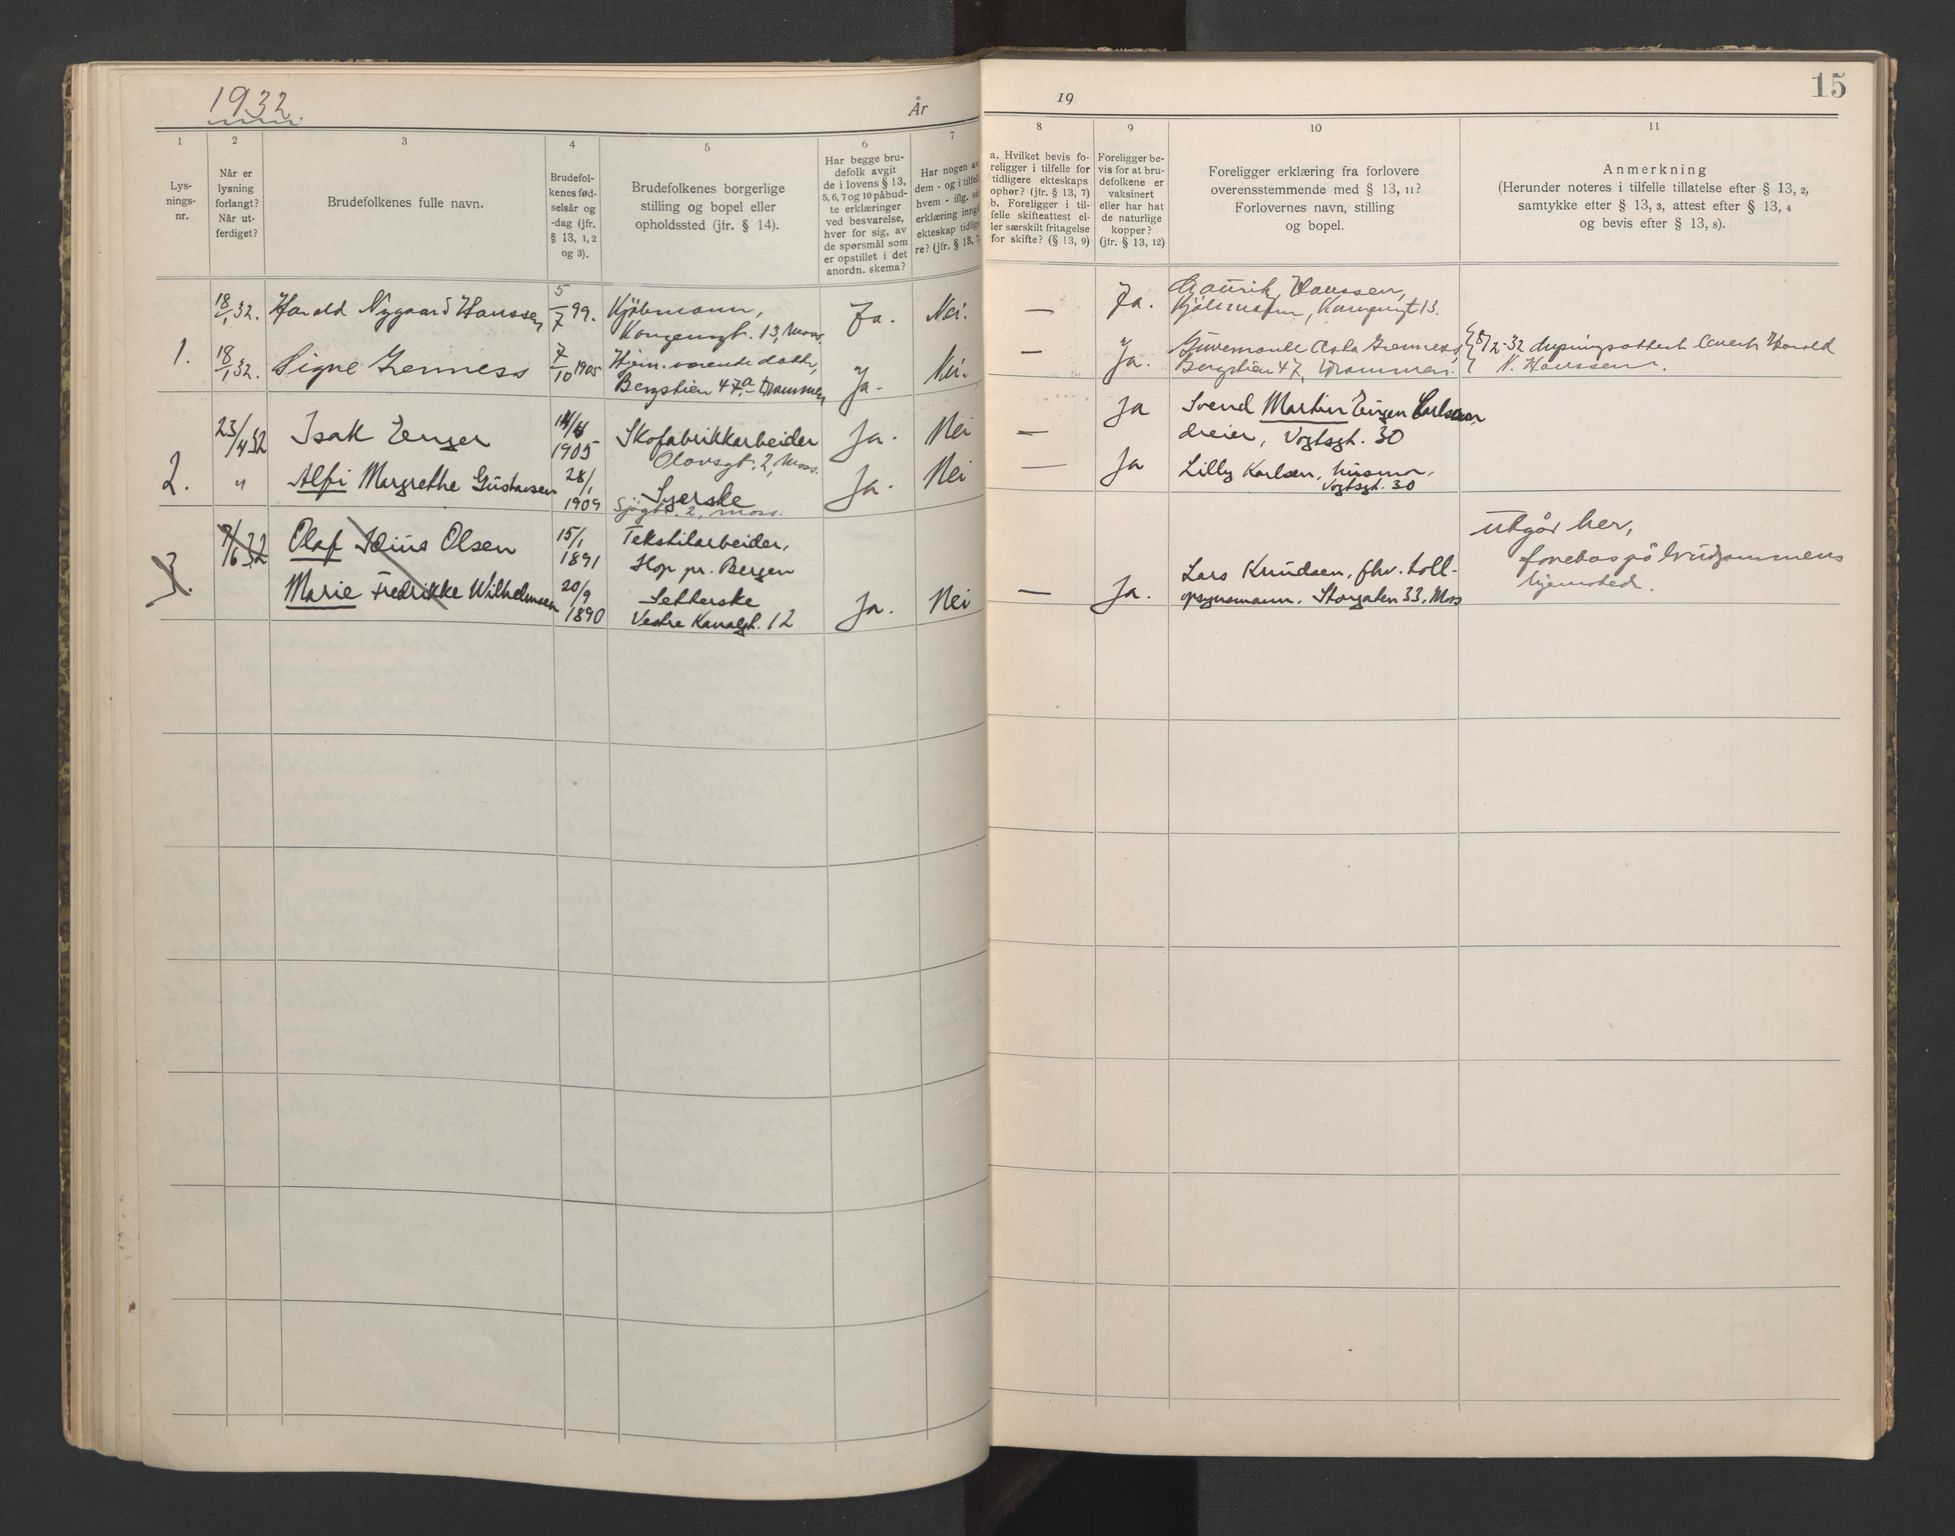 1932
År
19
15
1
2
3
4
5
6
7
8
9
10
11
Lys-
nings-
nr.
Når er
lysning
forlangt?
Når ut-
ferdiget?
Brudefolkenes fulle navn.
Brudefol-
kenes fød-
selsår og
-dag (jfr.
§ 13, 1, 2
og 3).
Brudefolkenes borgerlige
stilling og bopel eller
opholdssted (jfr. § 14).
Har begge bru-
defolk avgit
de i lovens § 13,
5, 6, 7 og 10 påbud-
te erklæringer
ved besvarelse,
hver for sig, av
de spørsmål som
er opstillet i det
anordn. skema?
Har nogen av
dem - og i tilfelle
hvem - iflg.
erklæring inngå
ekteskap tidlige
re? (jfr. § 13, 7
a. Hvilket bevis fo-
religger i tilfelle for
tidligere ekteskaps
ophør? (jfr. § 13, 7)
b. Foreligger i til-
felle skifteattest el-
ler særskilt fritagelse
for skifte? (§ 13, 9)
Foreligger be-
vis for at bru-
defolkene er
vaksinert
eller har hat
de naturlige
kopper?
(jfr. § 13, 12)
Foreligger erklæring fra forlovere
overensstemmende med § 13, 11?
Forlovernes navn, stilling
og bopel.
Anmerkning
(Herunder noteres i tilfelle tillatelse efter § 13, 2,
samtykke efter § 13, 3, attest efter § 13, 4
og bevis efter § 13, 8).
1.
18/1 32. Harald Nygaard Hanssen 5/7 99. Kjøbmann,
Kongensgt. 13, Moss. Ja. Nei. — Ja. Hanssen,
Kjøbmann, Kongensgt 13.
18/1 32. Signe Grenness 7/10 1905 Hjem. værende datter,
Bergstien 47a Drammen Ja. Nei. — Ja. Grenness,
Bergstien 47, Drammen.
8/2-32 lysningsattest Harald
N. Hanssen.
2.
23/4 32 Isak Enger 1905 Skofabrikkarbeider
Olavsgt. 2, Moss. Ja. Nei — Ja Svend Martin Carlsen
dreier, Vogtsgt. 30
" Alfi Margrethe Gustavsen 28/1 1909 Syerske
Sjøgt. 2, Moss. Ja. Nei — Ja Lilly Karlsen, husmor,
Vogtsgt. 30
3.
7/6 32 Olaf Olsen 15/1 1891 Tekstilarbeider,
Hop pr. Bergen
Marie Fredrikke Wilhelmsen 20/9 1890 Setterske
Vestre Kanalgt. 12 Ja. Nei — Ja. Lars Knudsen, fhv. toll-
opsynsmann. Storgaten 33, Moss
Utgår her,
på brudgommens
hjemsted.